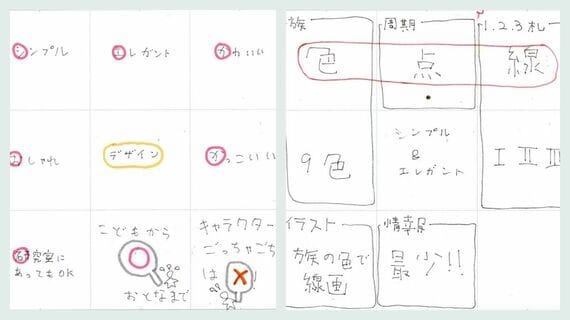 シンプル
エレガント
かわいい
おしゃれ
デザイン
かっこいい
研究室に
あってもOK
こどもから
おとなまで
キャラクター
ごっちゃごち
は
族
周期
1.2.3札
色
点
線
9色
シンプル
&
エレガント
I II III
イラスト
族の色で
線画
情報量
最少!!